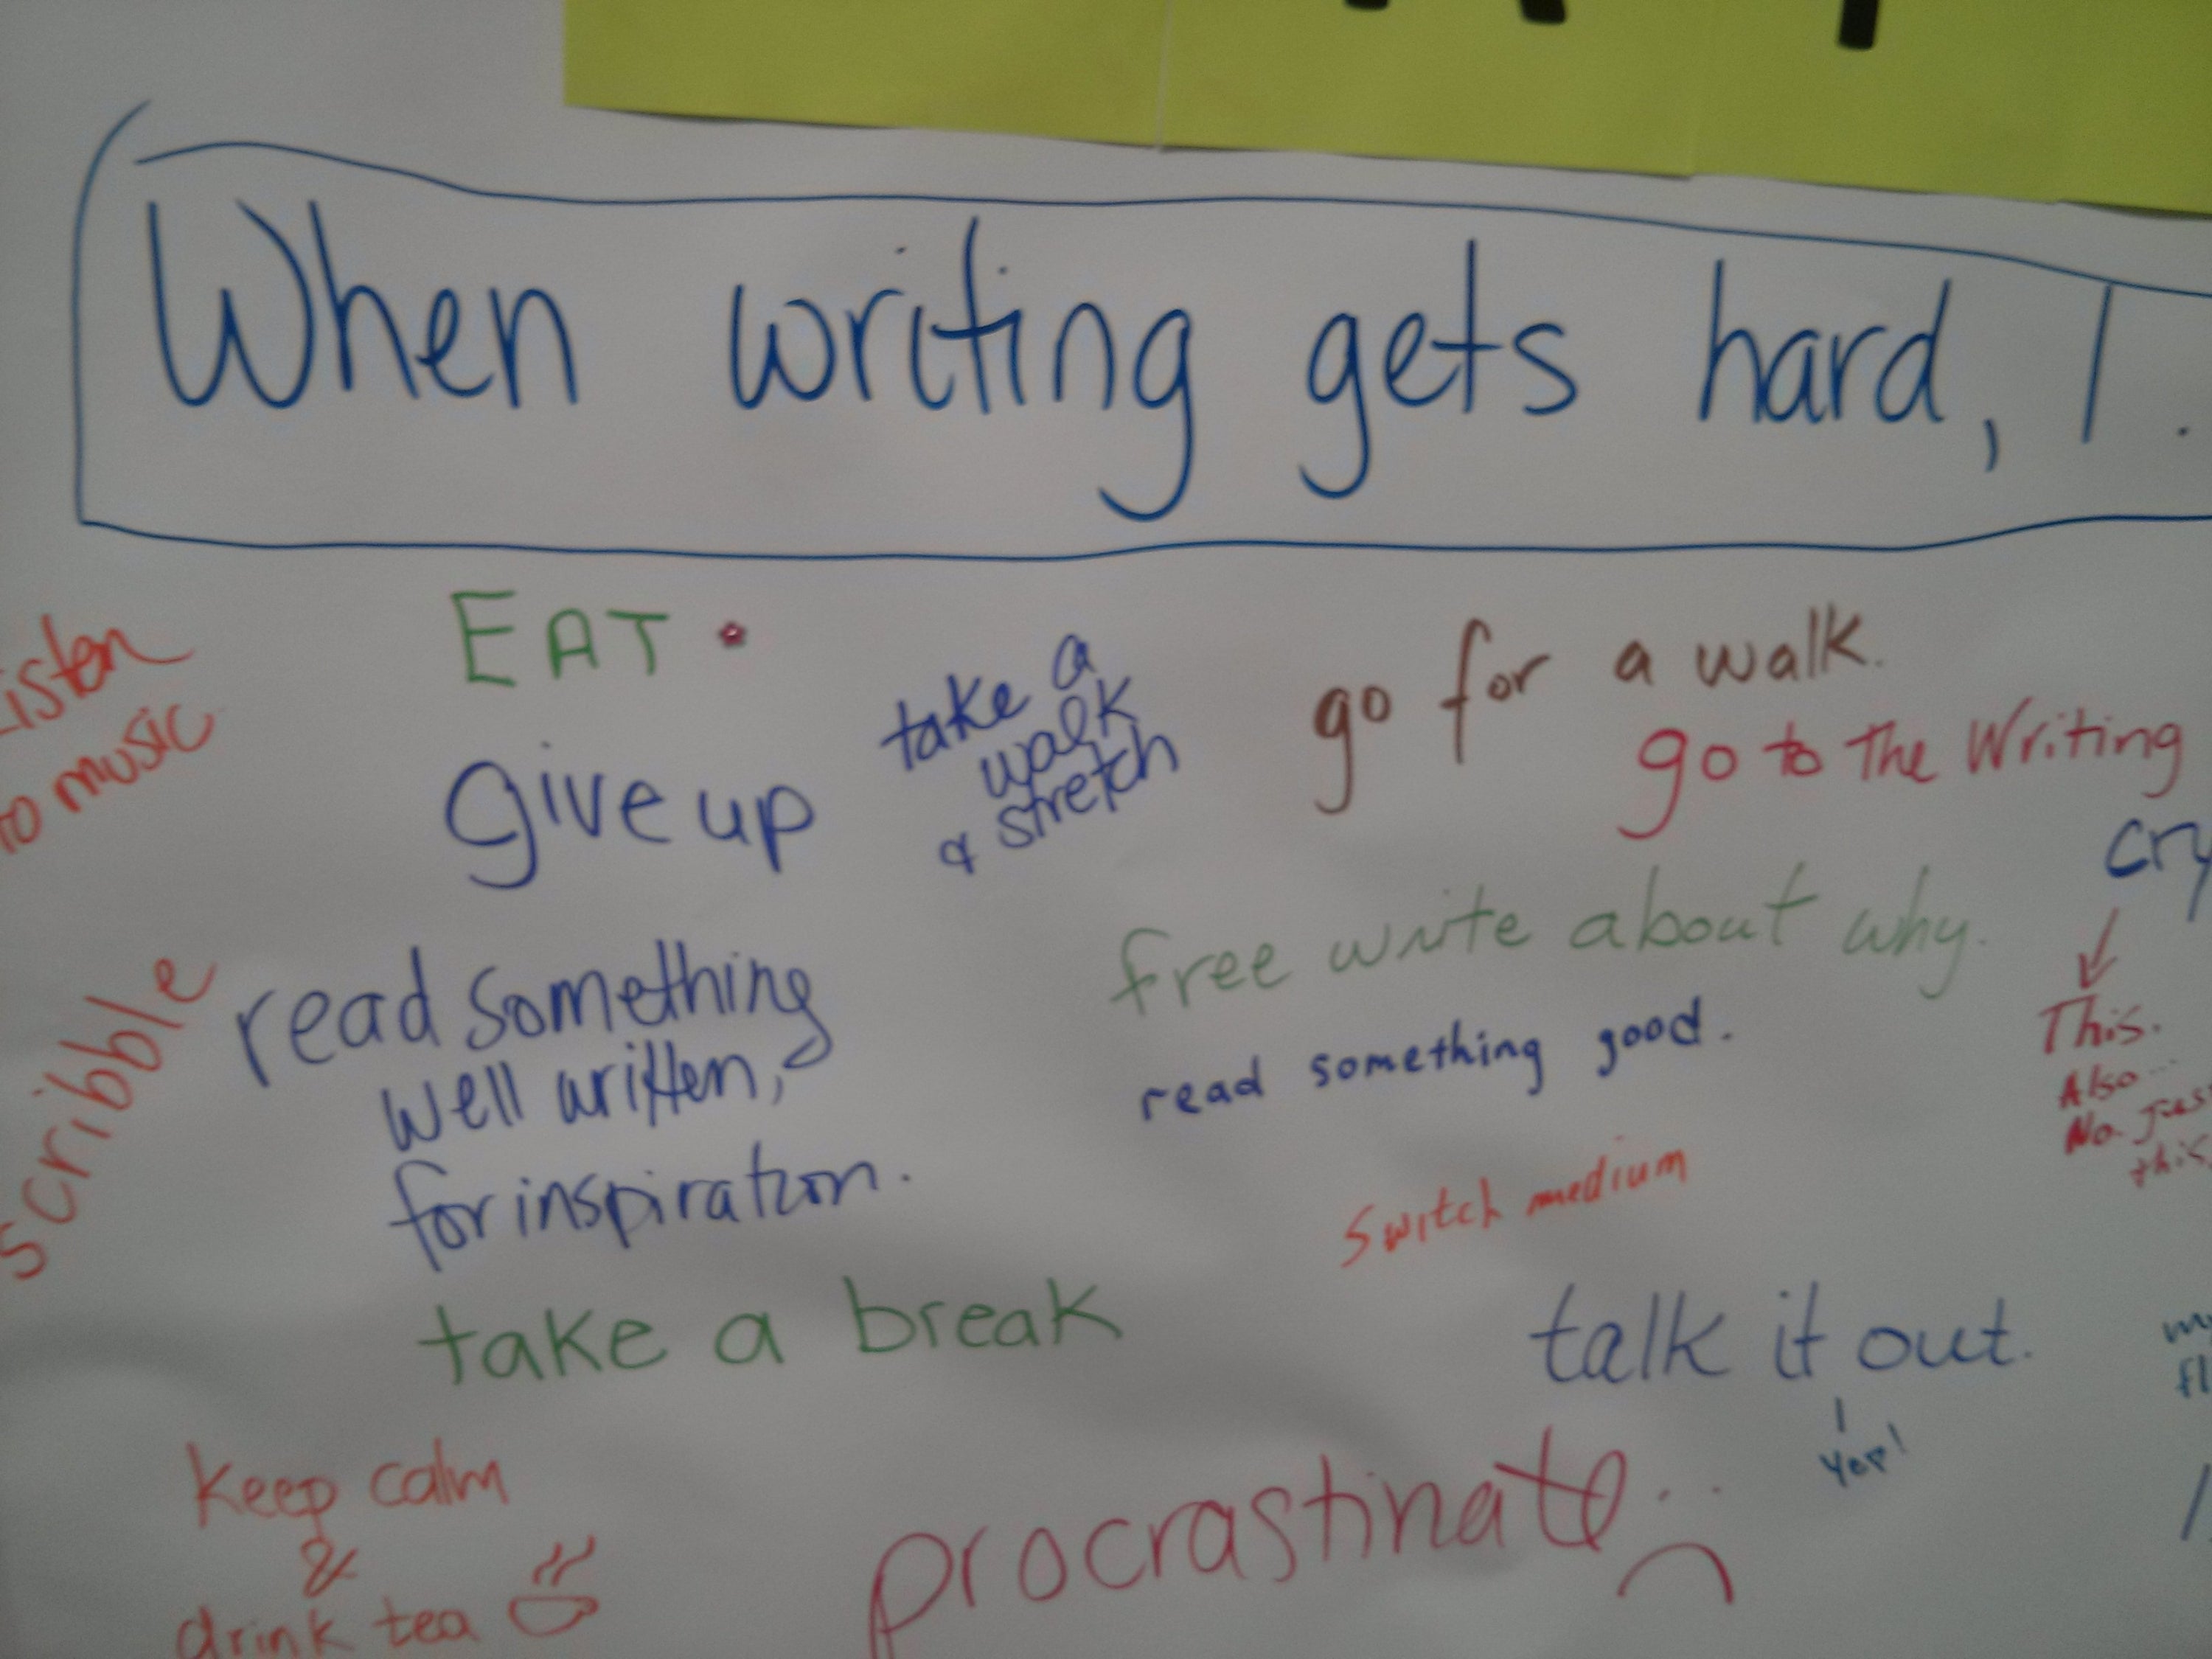 When writing gets hard, I.
EAT
Listen
to music
take a
walk
& stretch
go for a walk.
go to the Writing
give up
cry
free write about why.
This.
Also...
No. Just
this.
read something
well written,
for inspiration.
read something good.
scribble
Switch medium
take a break
talk it out.
Yep!
keep calm
&
drink tea
procrastinate